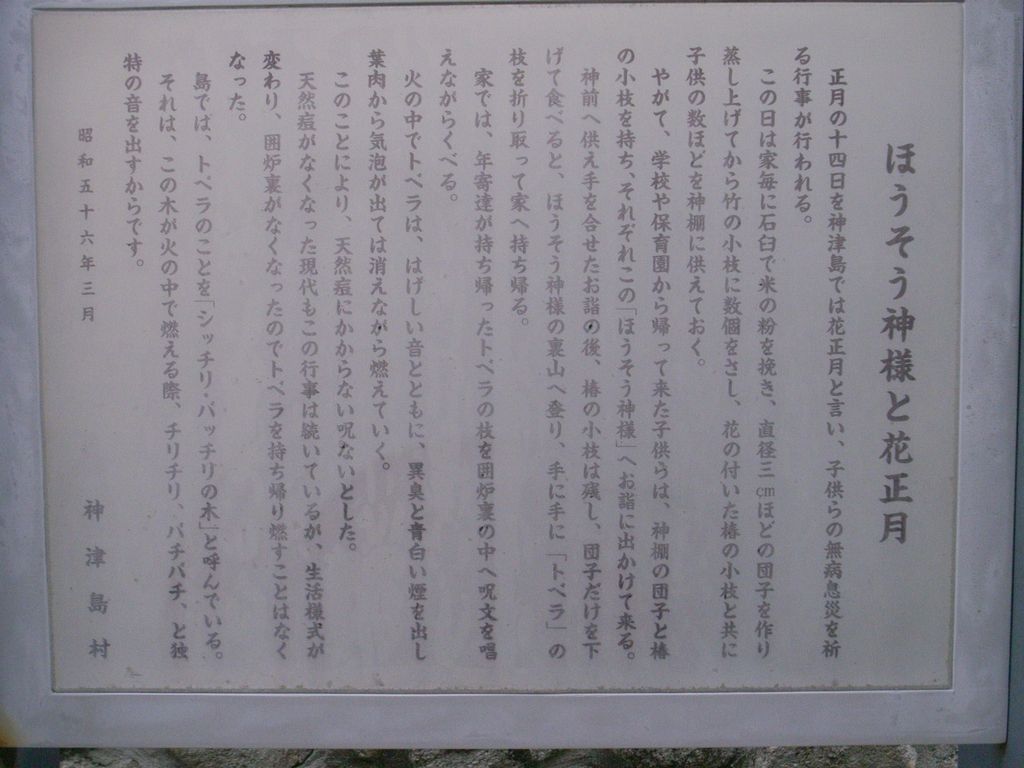 ほうそう神様と花正月
正月の十四日を神津島では花正月と言い、子供らの無病息災を祈
る行事が行われる。
この日は家毎に石臼で米の粉を挽き、直径三cmほどの団子を作り
蒸し上げてから竹の小枝に数個をさし、花の付いた椿の小枝と共に
子供の数ほどを神棚に供えておく。
やがて、学校や保育園から帰って来た子供らは、神棚の団子と椿
の小枝を持ち、それぞれこの「ほうそう神様」へお詣に出かけて来る。
神前へ供え手を合せたお詣の後、椿の小枝は残し、団子だけを下
げて食べると、ほうそう神様の裏山へ登り、手に手に「トベラ」の
枝を折り取って家へ持ち帰る。
家では、年寄達が持ち帰ったトベラの枝を囲炉裏の中へ呪文を唱
えながらくべる。
火の中でトベラは、はげしい音とともに、異臭と青白い煙を出し
葉肉から気泡が出ては消えながら燃えていく。
このことにより、天然痘にかからない呪ないとした。
天然痘がなくなった現代もこの行事は続いているが、生活様式が
変わり、囲炉裏がなくなったのでトベラを持ち帰り燃すことはなく
なった。
島では、トベラのことを「シッチリ・バッチリの木」と呼んでいる。
それは、この木が火の中で燃える際、チリチリ、パチパチ、と独
特の音を出すからです。
昭和五十六年三月
神津島村